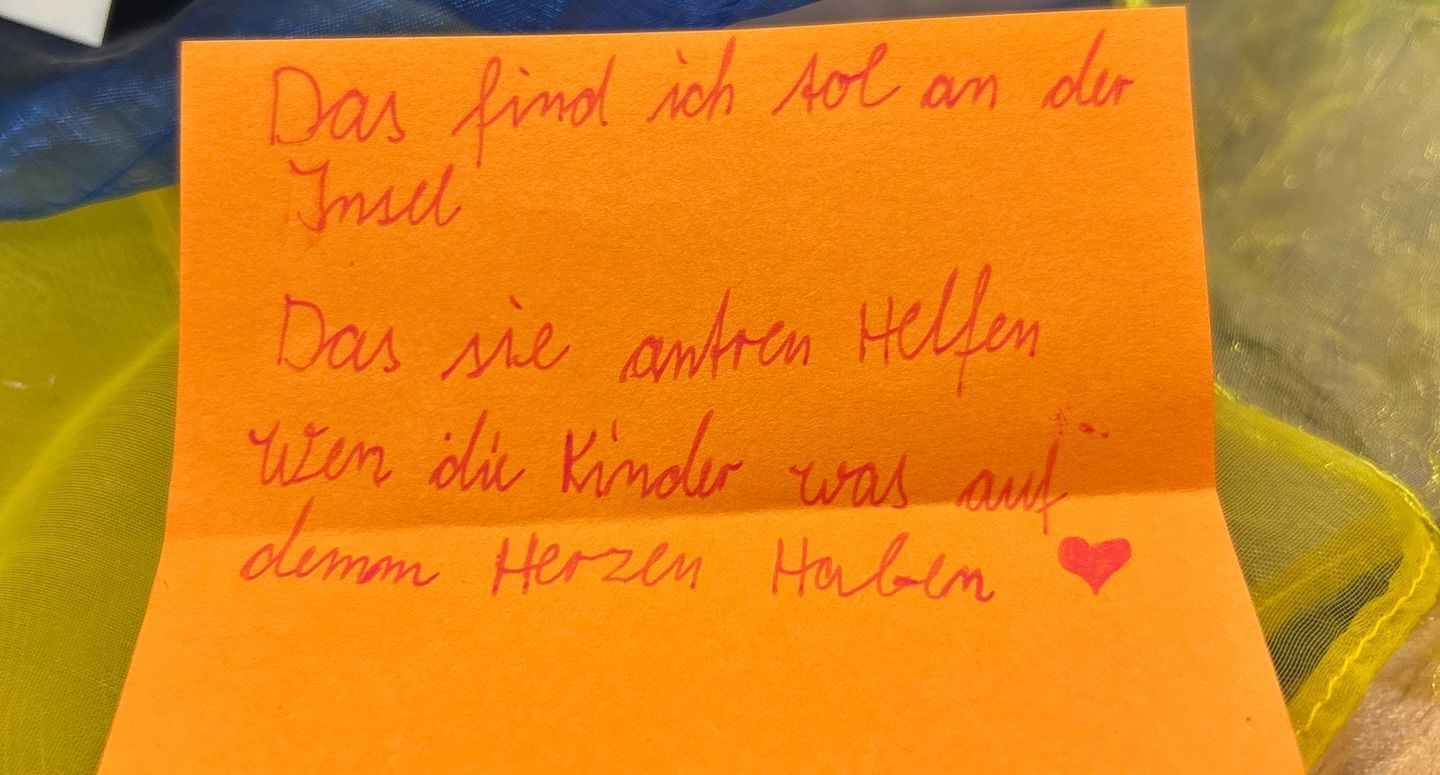 Das find ich tol an der
Insel
Das sie antren Helfen
Wen die Kinder was auf
demm Herzen Haben